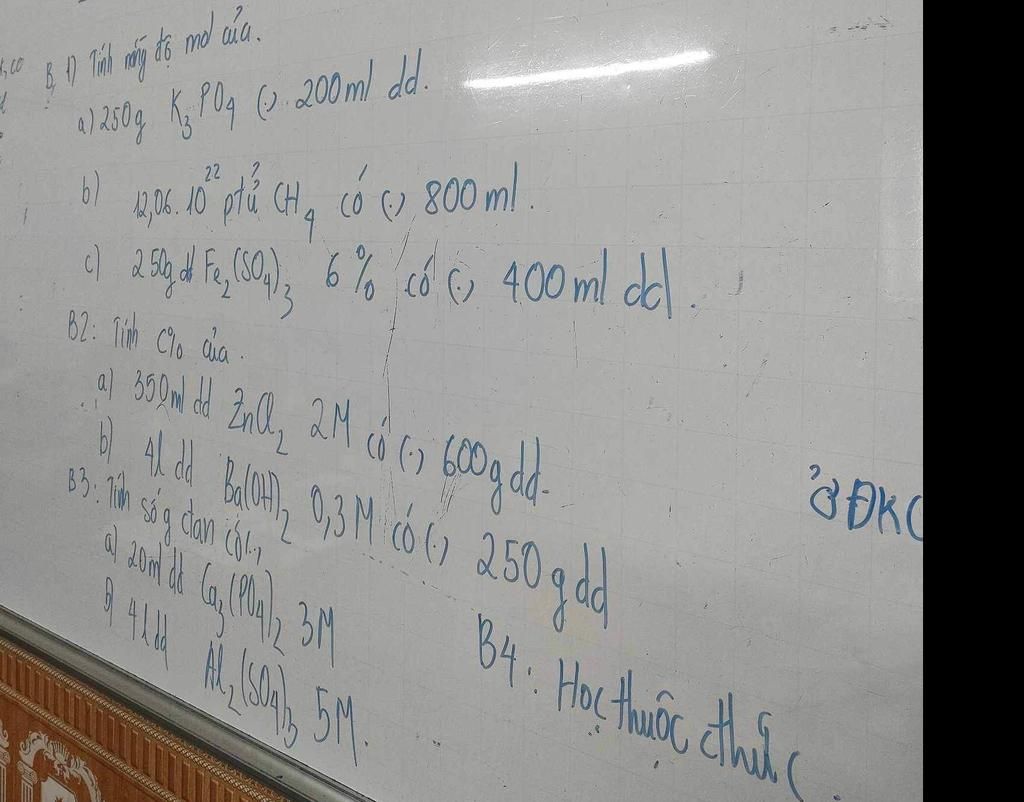 B, 1) Tính nồng độ mol của.
a) 250g K₃PO₄ (.) 200ml dd.
b) 12,06.10²² ptử CH₄ có (.) 800ml.
c) 250g dd Fe₂(SO₄)₃ 6% có (.) 400ml dd.
B2: Tính C% của.
a) 350ml dd ZnCl₂ 2M có (.) 600g dd.
b) 4l dd Ba(OH)₂ 0,3M có (.) 250g dd
B3: Tính số g ctan có (.)
a) 20ml dd Ca₃(PO₄)₂ 3M
b) 4l dd Al₂(SO₄)₃ 5M.
B4: Học thuộc cthức
Ở ĐKC